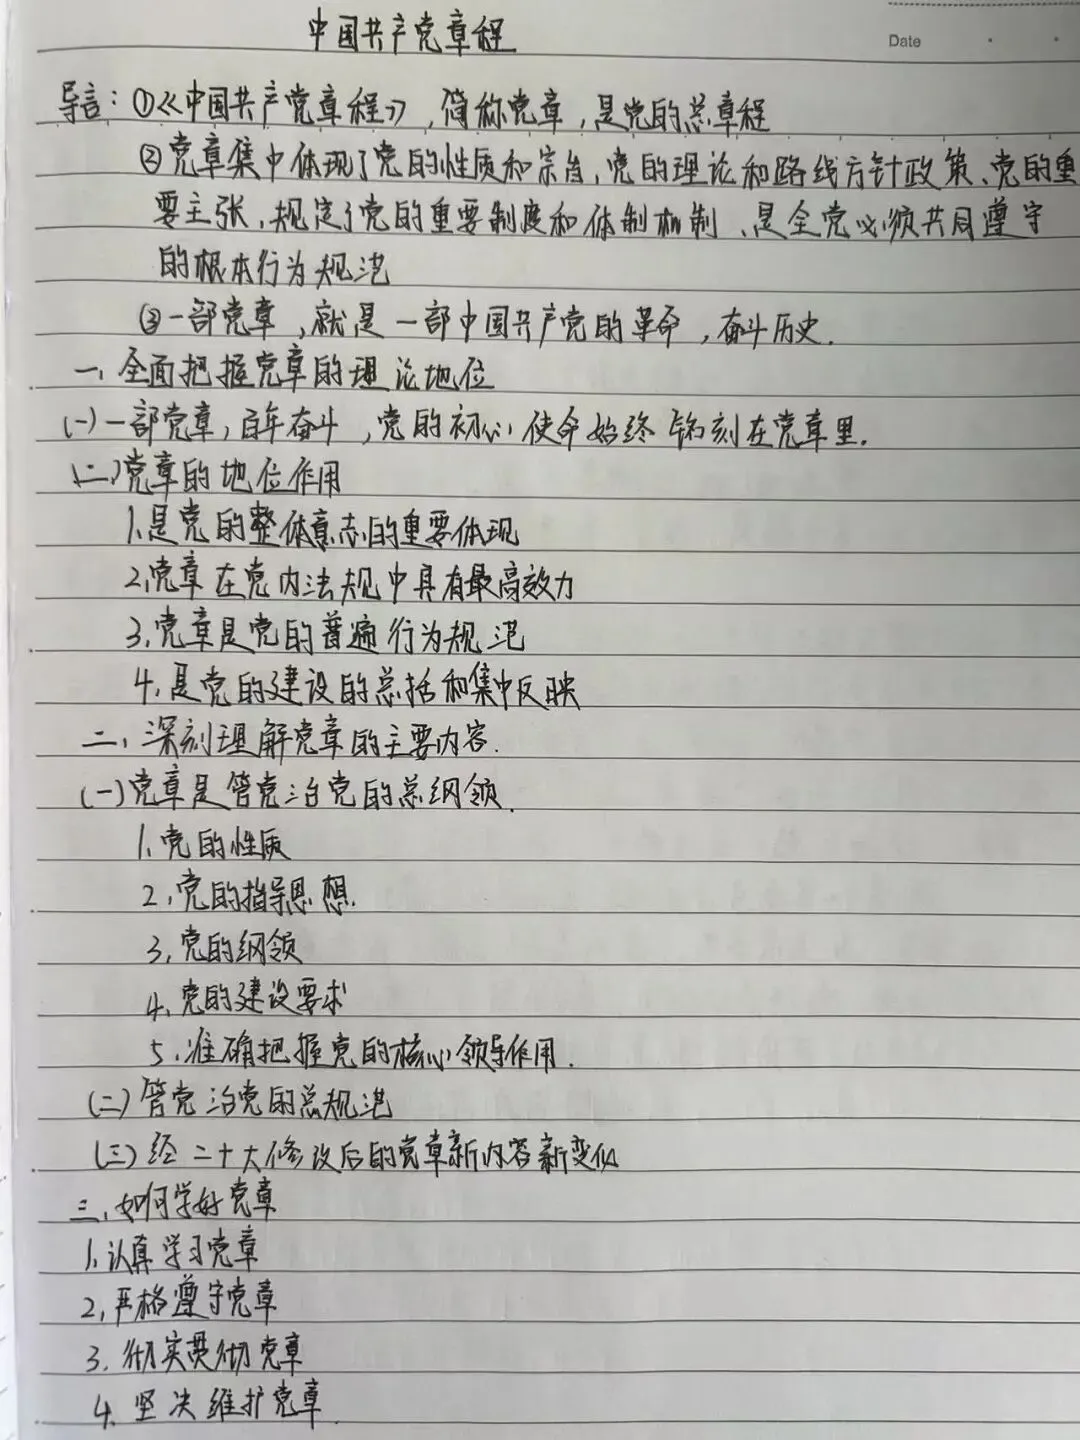 中国共产党章程
Date
导言：①《中国共产党章程》，简称党章，是党的总章程
②党章集中体现了党的性质和宗旨，党的理论和路线方针政策、党的重
要主张，规定了党的重要制度和体制机制、是全党必须共同遵守
的根本行为规范
③一部党章，就是一部中国共产党的革命，奋斗历史.
一、全面把握党章的理论地位
(一)一部党章，百年奋斗，党的初心使命始终铭刻在党章里.
(二)党章的地位作用
1.是党的整体意志的重要体现
2.党章在党内法规中具有最高效力
3.党章是党的普遍行为规范
4.是党的建设的总括和集中反映
二、深刻理解党章的主要内容.
(一)党章是管党治党的总纲领.
1.党的性质
2.党的指导思想.
3.党的纲领
4.党的建设要求
5.准确把握党的核心领导作用.
(二)管党治党的总规范
(三)经二十大修改后的党章新内容新变化
三、如何学好党章
1.认真学习党章
2.严格遵守党章
3.彻实贯彻党章
4.坚决维护党章.